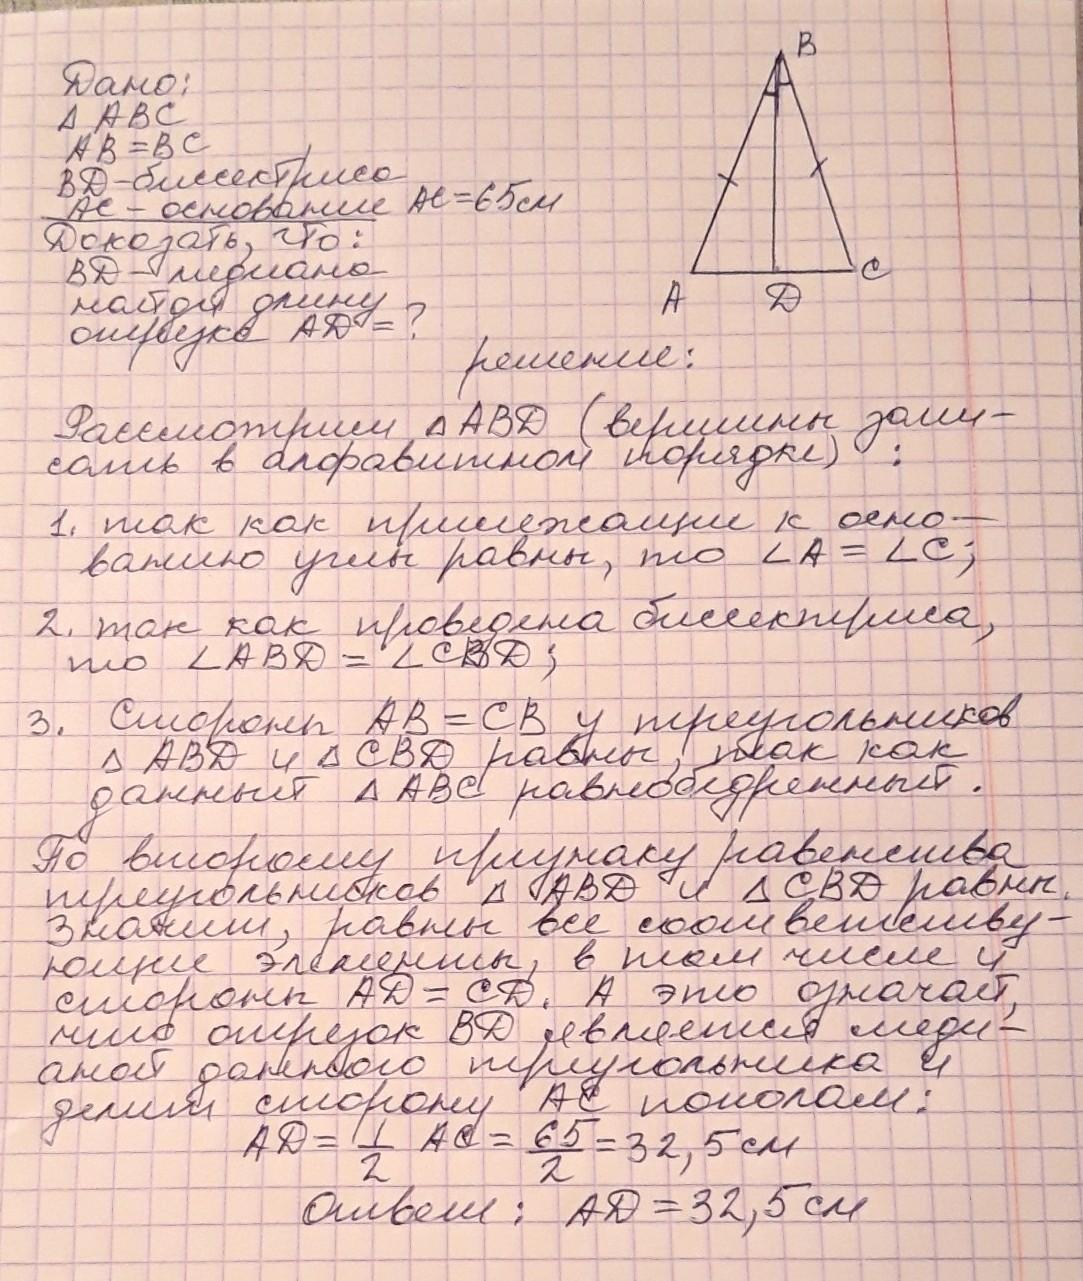 Дано:
△ ABC
AB = BC
BD - биссектриса
AC - основание AC = 65 см
Доказать, что:
BD - медиана
найти длину
отрезка AD = ?
решение:
Рассмотрим △ ABD (вершины запи-
сать в алфавитном порядке) :
1. так как прилежащие к осно-
ванию углы равны, то ∠A = ∠C;
2. так как проведена биссектриса,
то ∠ABD = ∠CBD;
3. Стороны AB = CB у треугольников
△ ABD и △ CBD равны, так как
данный △ ABC равнобедренный.
По второму признаку равенства
треугольников △ ABD и △ CBD равны.
Значит, равны все соответству-
ющие элементы, в том числе и
стороны AD = CD. А это означает,
что отрезок BD является меди-
аной данного треугольника и
делит сторону AC пополам:
AD = 1/2 AC = 65/2 = 32,5 см
Ответ: AD = 32,5 см
B
A
D
C